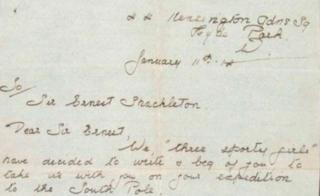 Kensington Gdns Sq
Hyde Park
January 11th
To
Sir Ernest Shackleton
Dear Sir Ernest,
We "three sporty girls"
have decided to write & beg of you to
take us with you on your expedition
to the South Pole.